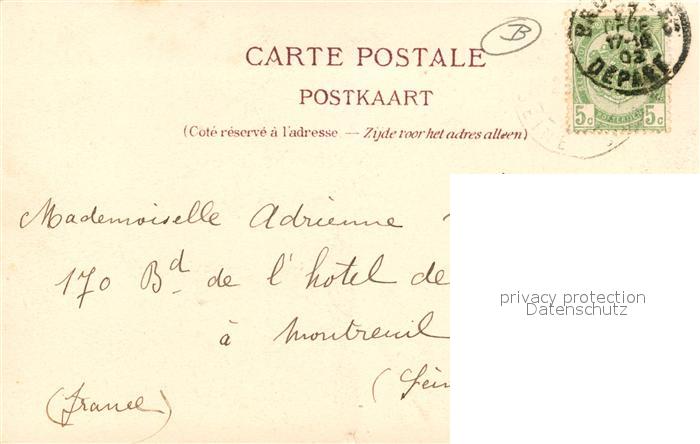 CARTE POSTALE
POSTKAART
(Coté réservé à l'adresse. — Zijde voor het adres alleen)
B
17-18
03
DÉPART
5c 5c
Mademoiselle Adrienne
170 Bd de l'hotel de
à Montreuil
(France)
privacy protection
Datenschutz